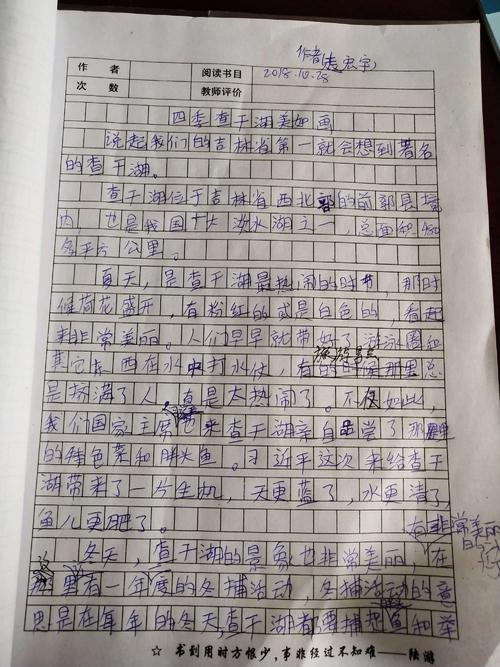 作者 宏宇
作 者 阅读书目 2018.10.28
次 数 教师评价
四季查干湖美如画
说起我们的吉林省第一就会想到著名
的查干湖。
查干湖位于吉林省西北部的前郭县境
内，也是我国十大淡水湖之一，总面积480
多平方公里。
夏天，是查干湖最热闹的时节，那时
候荷花盛开，有粉红的或是白色的，看起
来非常美丽。人们早早就带好了游泳圈和
其它东西在水中打水仗，有的时候那里总
是挤满了人。真是太热闹了。不仅如此，
我们国家主席也来查干湖亲自品尝了那里
的特色菜和胖头鱼。习近平这次来给查干
湖带来了一片生机，天更蓝了，水更清了，
鱼儿更肥了。
有非常美丽的
冬天，查干湖的景象也非常美丽，在
那里有一年度的冬捕活动，冬捕活动的意
思是在每年的冬天，查干湖都要捕捉鱼和举
☆ 书到用时方恨少，事非经过不知难——陆游